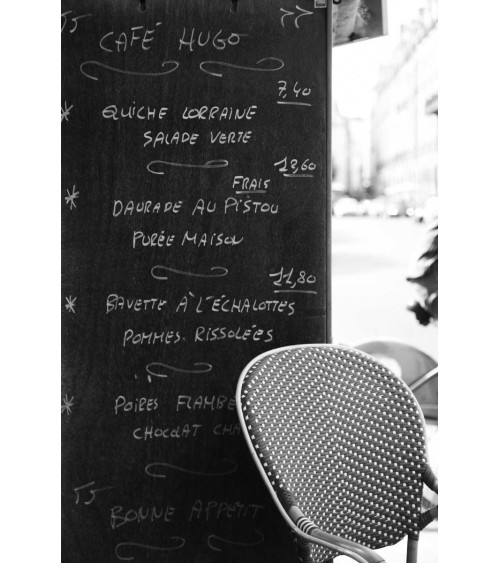 CAFÉ HUGO
7,40
QUICHE LORRAINE
SALADE VERTE
13,60
FRAIS
DAURADE AU PISTOU
PURÉE MAISON
11,80
BAVETTE À L'ÉCHALOTTES
POMMES RISSOLÉES
POIRES FLAMBE
CHOCOLAT CHA
BONNE APPETIT